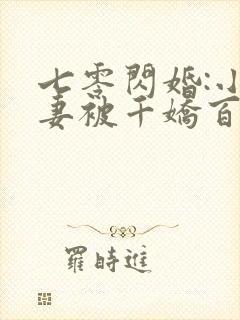 七零閃婚:小
妻被千嬌百
羅時進